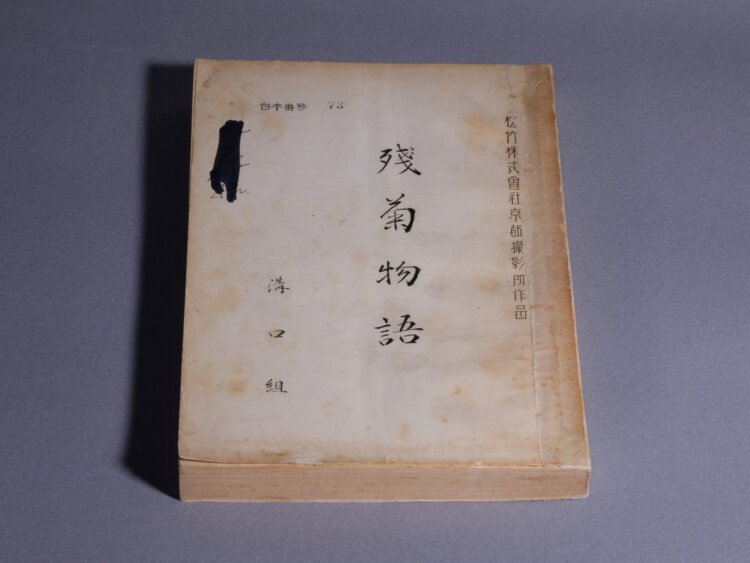 松竹株式會社京都撮影所作品
台本番号 73
殘菊物語
溝口組